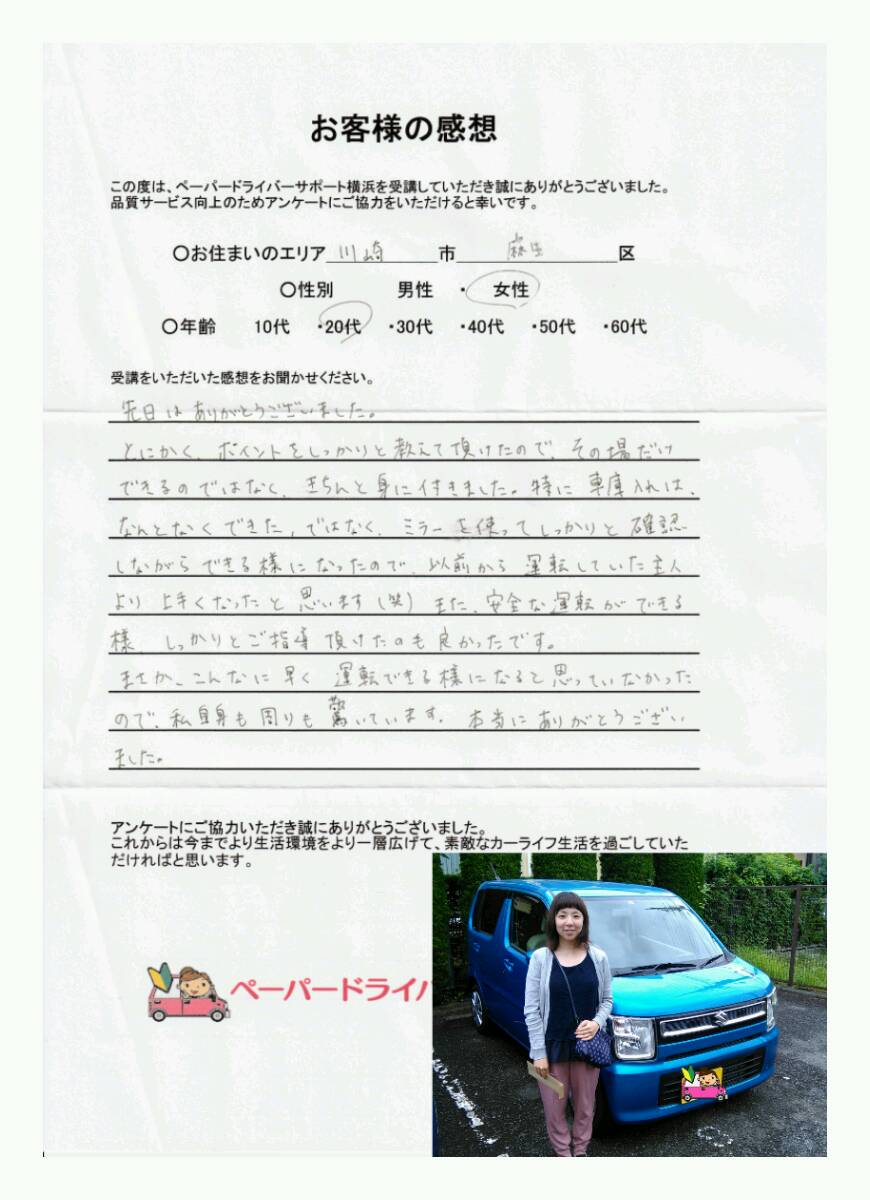 お客様の感想
この度は、ペーパードライバーサポート横浜を受講していただき誠にありがとうございました。
品質サービス向上のためアンケートにご協力をいただけると幸いです。
〇お住まいのエリア 川崎 市 麻生 区
〇性別 男性 ・ 女性
〇年齢 10代 ・20代 ・30代 ・40代 ・50代 ・60代
受講をいただいた感想をお聞かせください。
先日はありがとうございました。
とにかく、ポイントをしっかりと教えて頂けたので、その場だけ
できるのではなく、きちんと身に付きました。特に車庫入れは、
なんとなくできた、ではなく、ミラーを使ってしっかりと確認
しながらできる様になったので、以前から運転していた主人
より上手くなったと思います(笑)また、安全な運転ができる
様、しっかりとご指導頂けたのも良かったです。
まさか、こんなに早く運転できる様になると思っていなかった
ので、私自身も周りも驚いています。本当にありがとうござい
ました。
アンケートにご協力いただき誠にありがとうございました。
これからは今までより生活環境をより一層広げて、素敵なカーライフ生活を過ごしていた
だければと思います。
ペーパードライバ